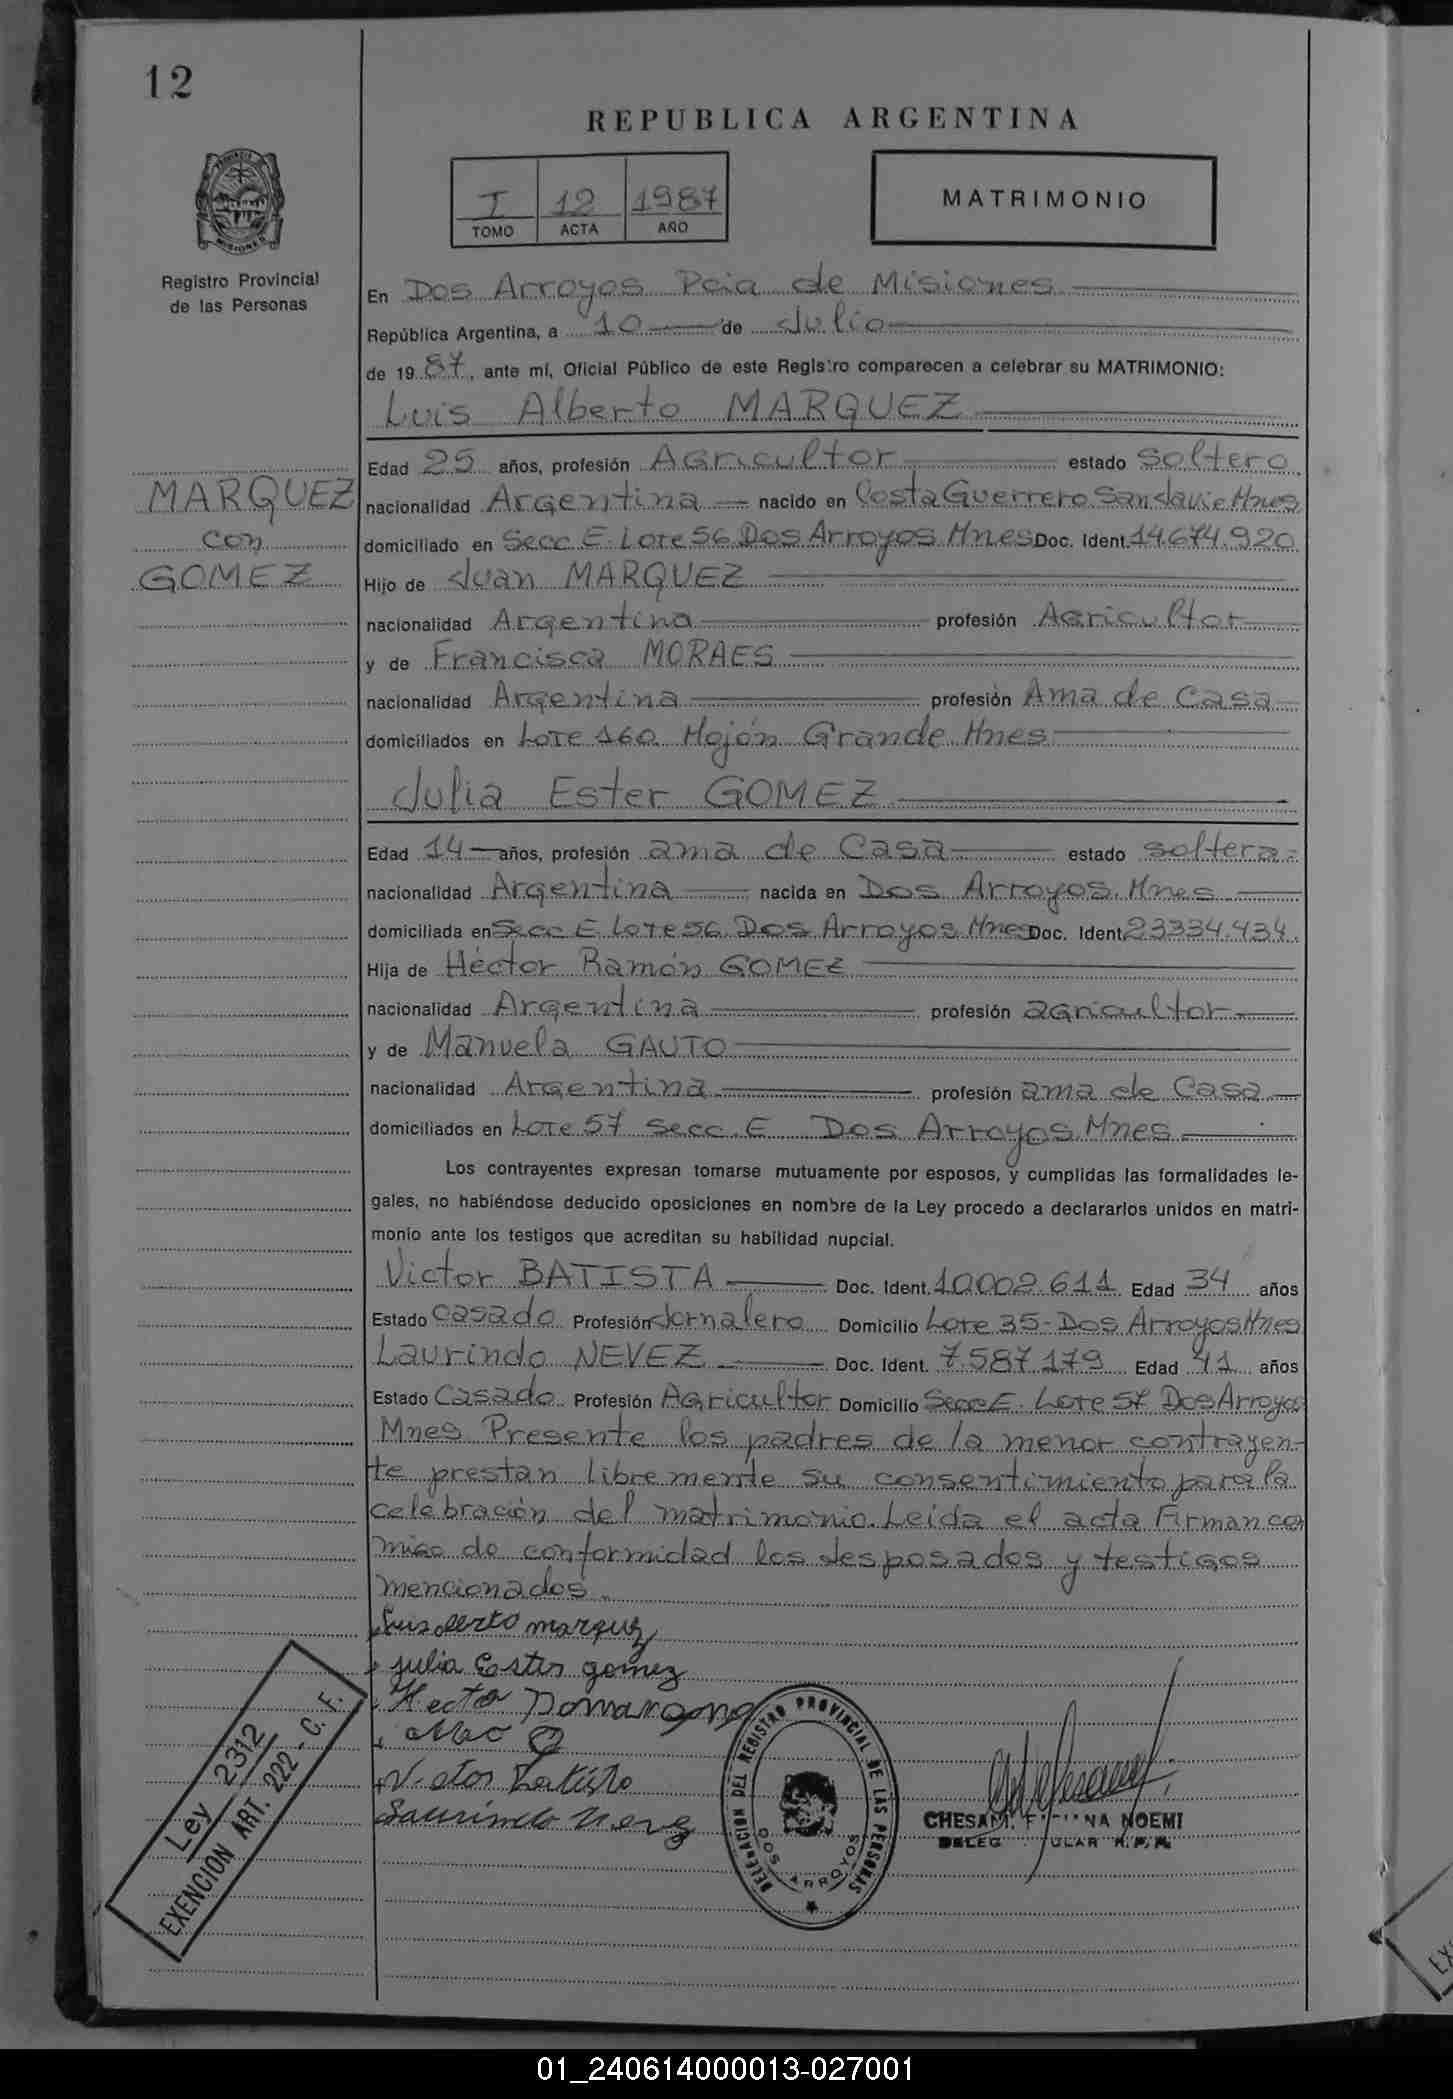 12
REPUBLICA ARGENTINA
I 12 1987
TOMO ACTA AÑO
MATRIMONIO
PROVINCIA DE MISIONES
Registro Provincial
de las Personas
En Dos Arroyos Pcia de Misiones
República Argentina, a 10 de Julio
de 1987, ante mí, Oficial Público de este Registro comparecen a celebrar su MATRIMONIO:
Luis Alberto MARQUEZ
Edad 25 años, profesión Agricultor estado soltero
MARQUEZ
con
GOMEZ
nacionalidad Argentina nacido en Costa Guerrero San Javier Mnes
domiciliado en Secc E. Lote 56 Dos Arroyos Mnes Doc. Ident. 14.674.920
Hijo de Juan MARQUEZ
nacionalidad Argentina profesión Agricultor
y de Francisca MORAES
nacionalidad Argentina profesión Ama de Casa
domiciliados en Lote 160 Mojón Grande Mnes
Julia Ester GOMEZ
Edad 14 años, profesión ama de Casa estado soltera
nacionalidad Argentina nacida en Dos Arroyos. Mnes
domiciliada en Secc E Lote 56 Dos Arroyos Mnes Doc. Ident. 23334.434
Hija de Héctor Ramón GOMEZ
nacionalidad Argentina profesión agricultor
y de Manuela GAUTO
nacionalidad Argentina profesión ama de Casa
domiciliados en Lote 57 Secc. E Dos Arroyos Mnes
Los contrayentes expresan tomarse mutuamente por esposos, y cumplidas las formalidades le-
gales, no habiéndose deducido oposiciones en nombre de la Ley procedo a declararlos unidos en matri-
monio ante los testigos que acreditan su habilidad nupcial.
Victor BATISTA Doc. Ident. 10.002.611 Edad 34 años
Estado casado Profesión Jornalero Domicilio Lote 35- Dos Arroyos Mnes
Laurindo NEVEZ Doc. Ident. 7.587.179 Edad 41 años
Estado Casado Profesión Agricultor Domicilio Secc E. Lote 57 Dos Arroyos
Mnes Presente los padres de la menor contrayen-
te prestan libremente su consentimiento para la
celebración del matrimonio. Leída el acta Firman co
migo de conformidad los desposados y testigos
mencionados.
julia Ester gomez
Victor Batista
Laurindo Nevez
Ley 2312
EXENCION ART. 222 - C. F.
DELEGACION DEL REGISTRO PROVINCIAL DE LAS PERSONAS
DOS ARROYOS
NOEMI
01_240614000013-027001